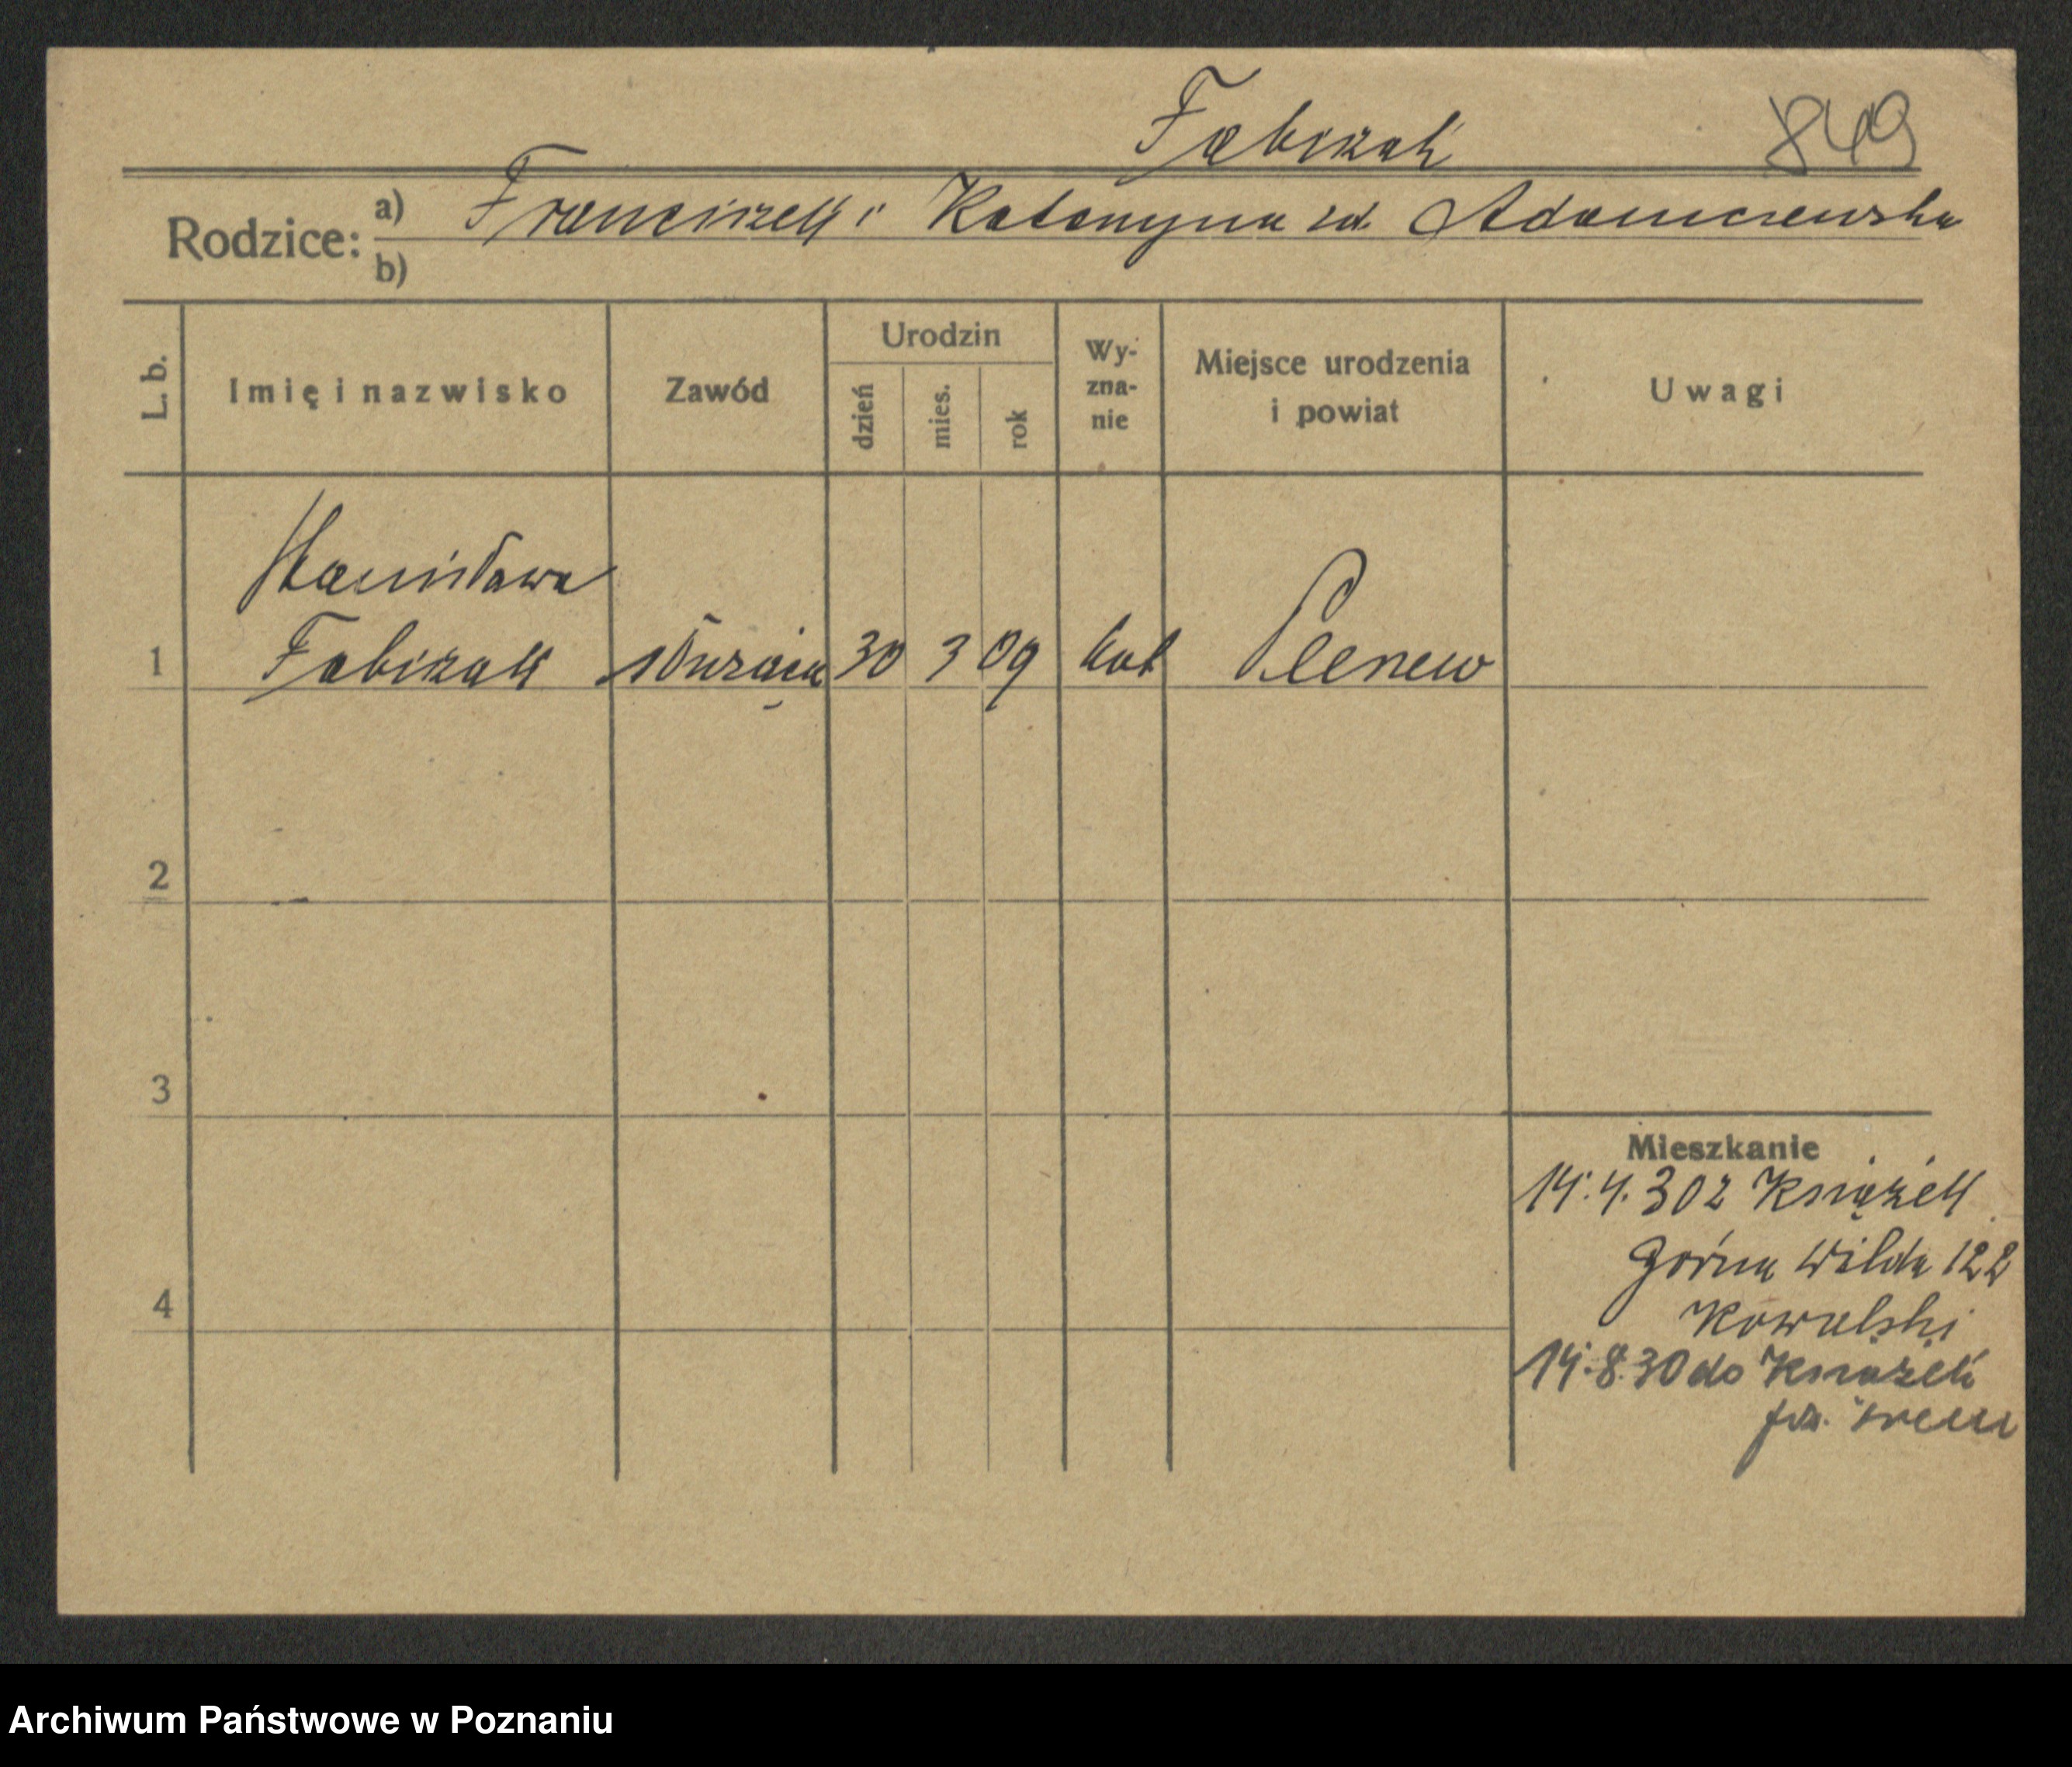 Fabizak 849
Rodzice: a) Franciszek i Katarzyna zd. Adamczewska
b)
L. b. Imię i nazwisko Zawód Urodzin dzień mies. rok Wy-zna-nie Miejsce urodzenia i powiat Uwagi
Stanisława
1 Fabizak służąca 30 3 09 kat
2
3
Mieszkanie
14.4.30 z Książek
Górna Wilda 122
4 Kowalski
14.8.30 do Książek
Archiwum Państwowe w Poznaniu